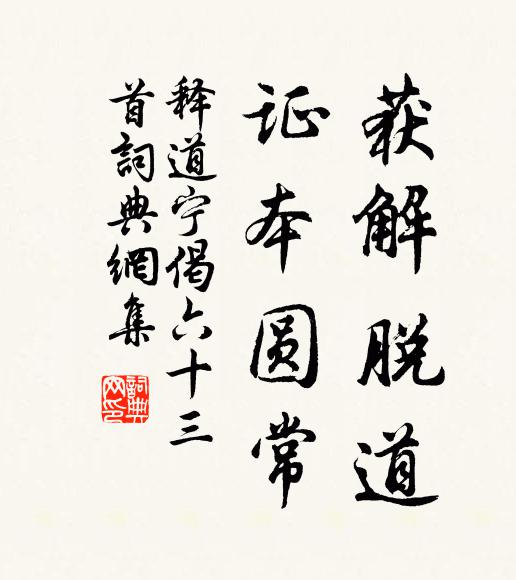 获解脱道
证本圆常
释道宁偈六十三
首詞典網集
詞典网印